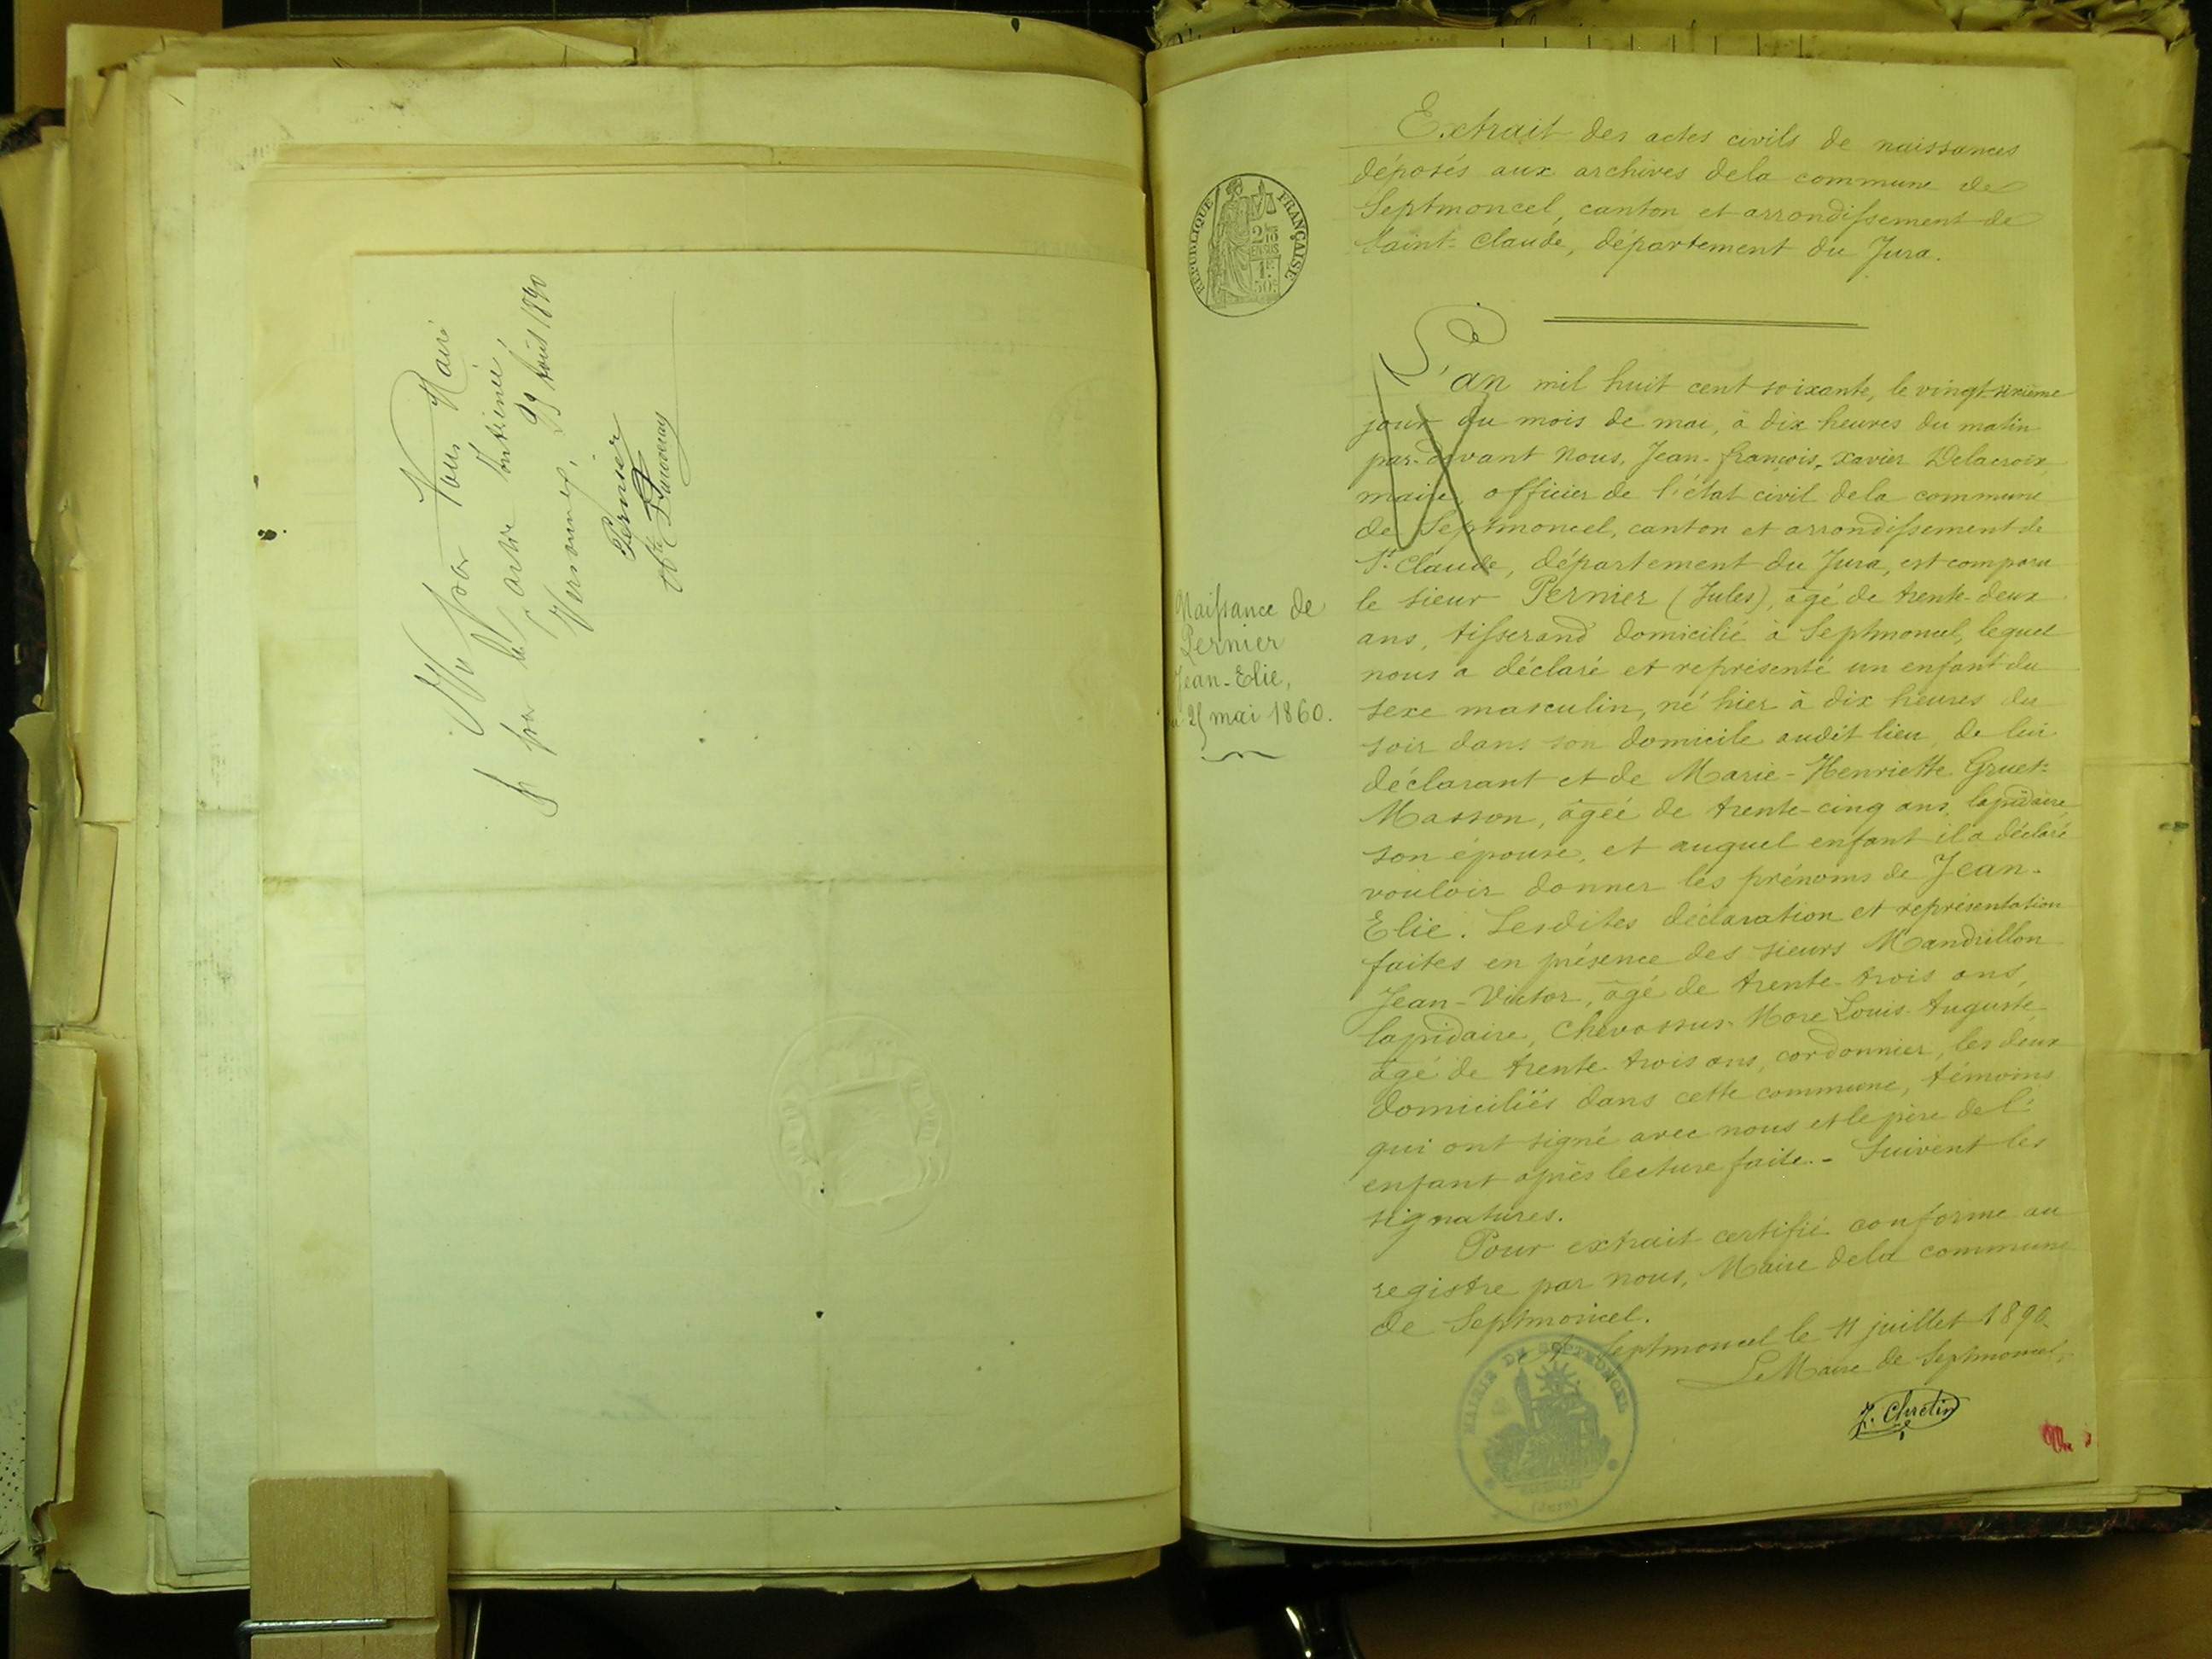 Vu par Nous Maire
& par la partie intéressée,
Versonnex, 23 Août 1890
Pernier
Extrait des actes civils de naissances
déposés aux archives dela commune de
Septmoncel, canton et arrondissement de
Saint-Claude, département du Jura.
RÉPUBLIQUE FRANÇAISE
2/10
EN SUS
1F
50c
Naissance de
Pernier
Jean-Elie,
25 mai 1860.
L'an mil huit cent soixante, le vingt-sixième
jour du mois de mai, à dix heures du matin
par-devant Nous, Jean-françois-Xavier Delacroix
maire, officier de l'état civil dela commune
de Septmoncel, canton et arrondissement de
St. Claude, département du Jura, est comparu
le sieur Pernier (Jules), âgé de trente-deux
ans, tisserand domicilié à Septmoncel, lequel
nous a déclaré et représenté un enfant du
sexe masculin, né hier à dix heures du
soir dans son domicile audit lieu, de lui
déclarant et de Marie-Henriette Gruet-
Masson, âgée de trente-cinq ans, lapidaire
son épouse, et auquel enfant il a déclaré
vouloir donner les prénoms de Jean-
Elie. Lesdites déclaration et représentation
faites en présence des sieurs Mandrillon
Jean-Victor, âgé de trente-trois ans,
lapidaire, Chevassus-More Louis-Auguste
âgé de trente trois ans, cordonnier, les deux
domiciliés dans cette commune, témoins
qui ont signé avec nous et le père de l'
enfant après lecture faite. - Suivent les
signatures.
Pour extrait certifié conforme au
registre par nous, Maire dela commune
de Septmoncel.
A Septmoncel le 11 juillet 1890.
Le Maire de Septmoncel
MAIRIE DE SEPTMONCEL
(Jura)
J. Chretin